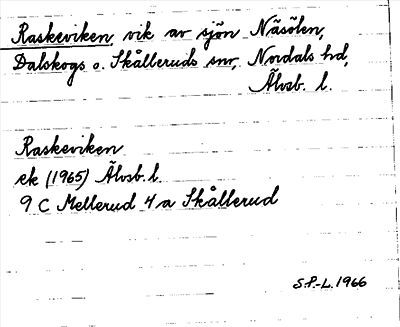 Raskeviken, vik av sjön Näsölen,
Dalskogs o. Skålleruds snr, Nordals hd,
Älvsb. l.
Raskeviken
ek (1965) Älvsb. l.
9 C Mellerud 4 a Skållerud
S.P.-L. 1966